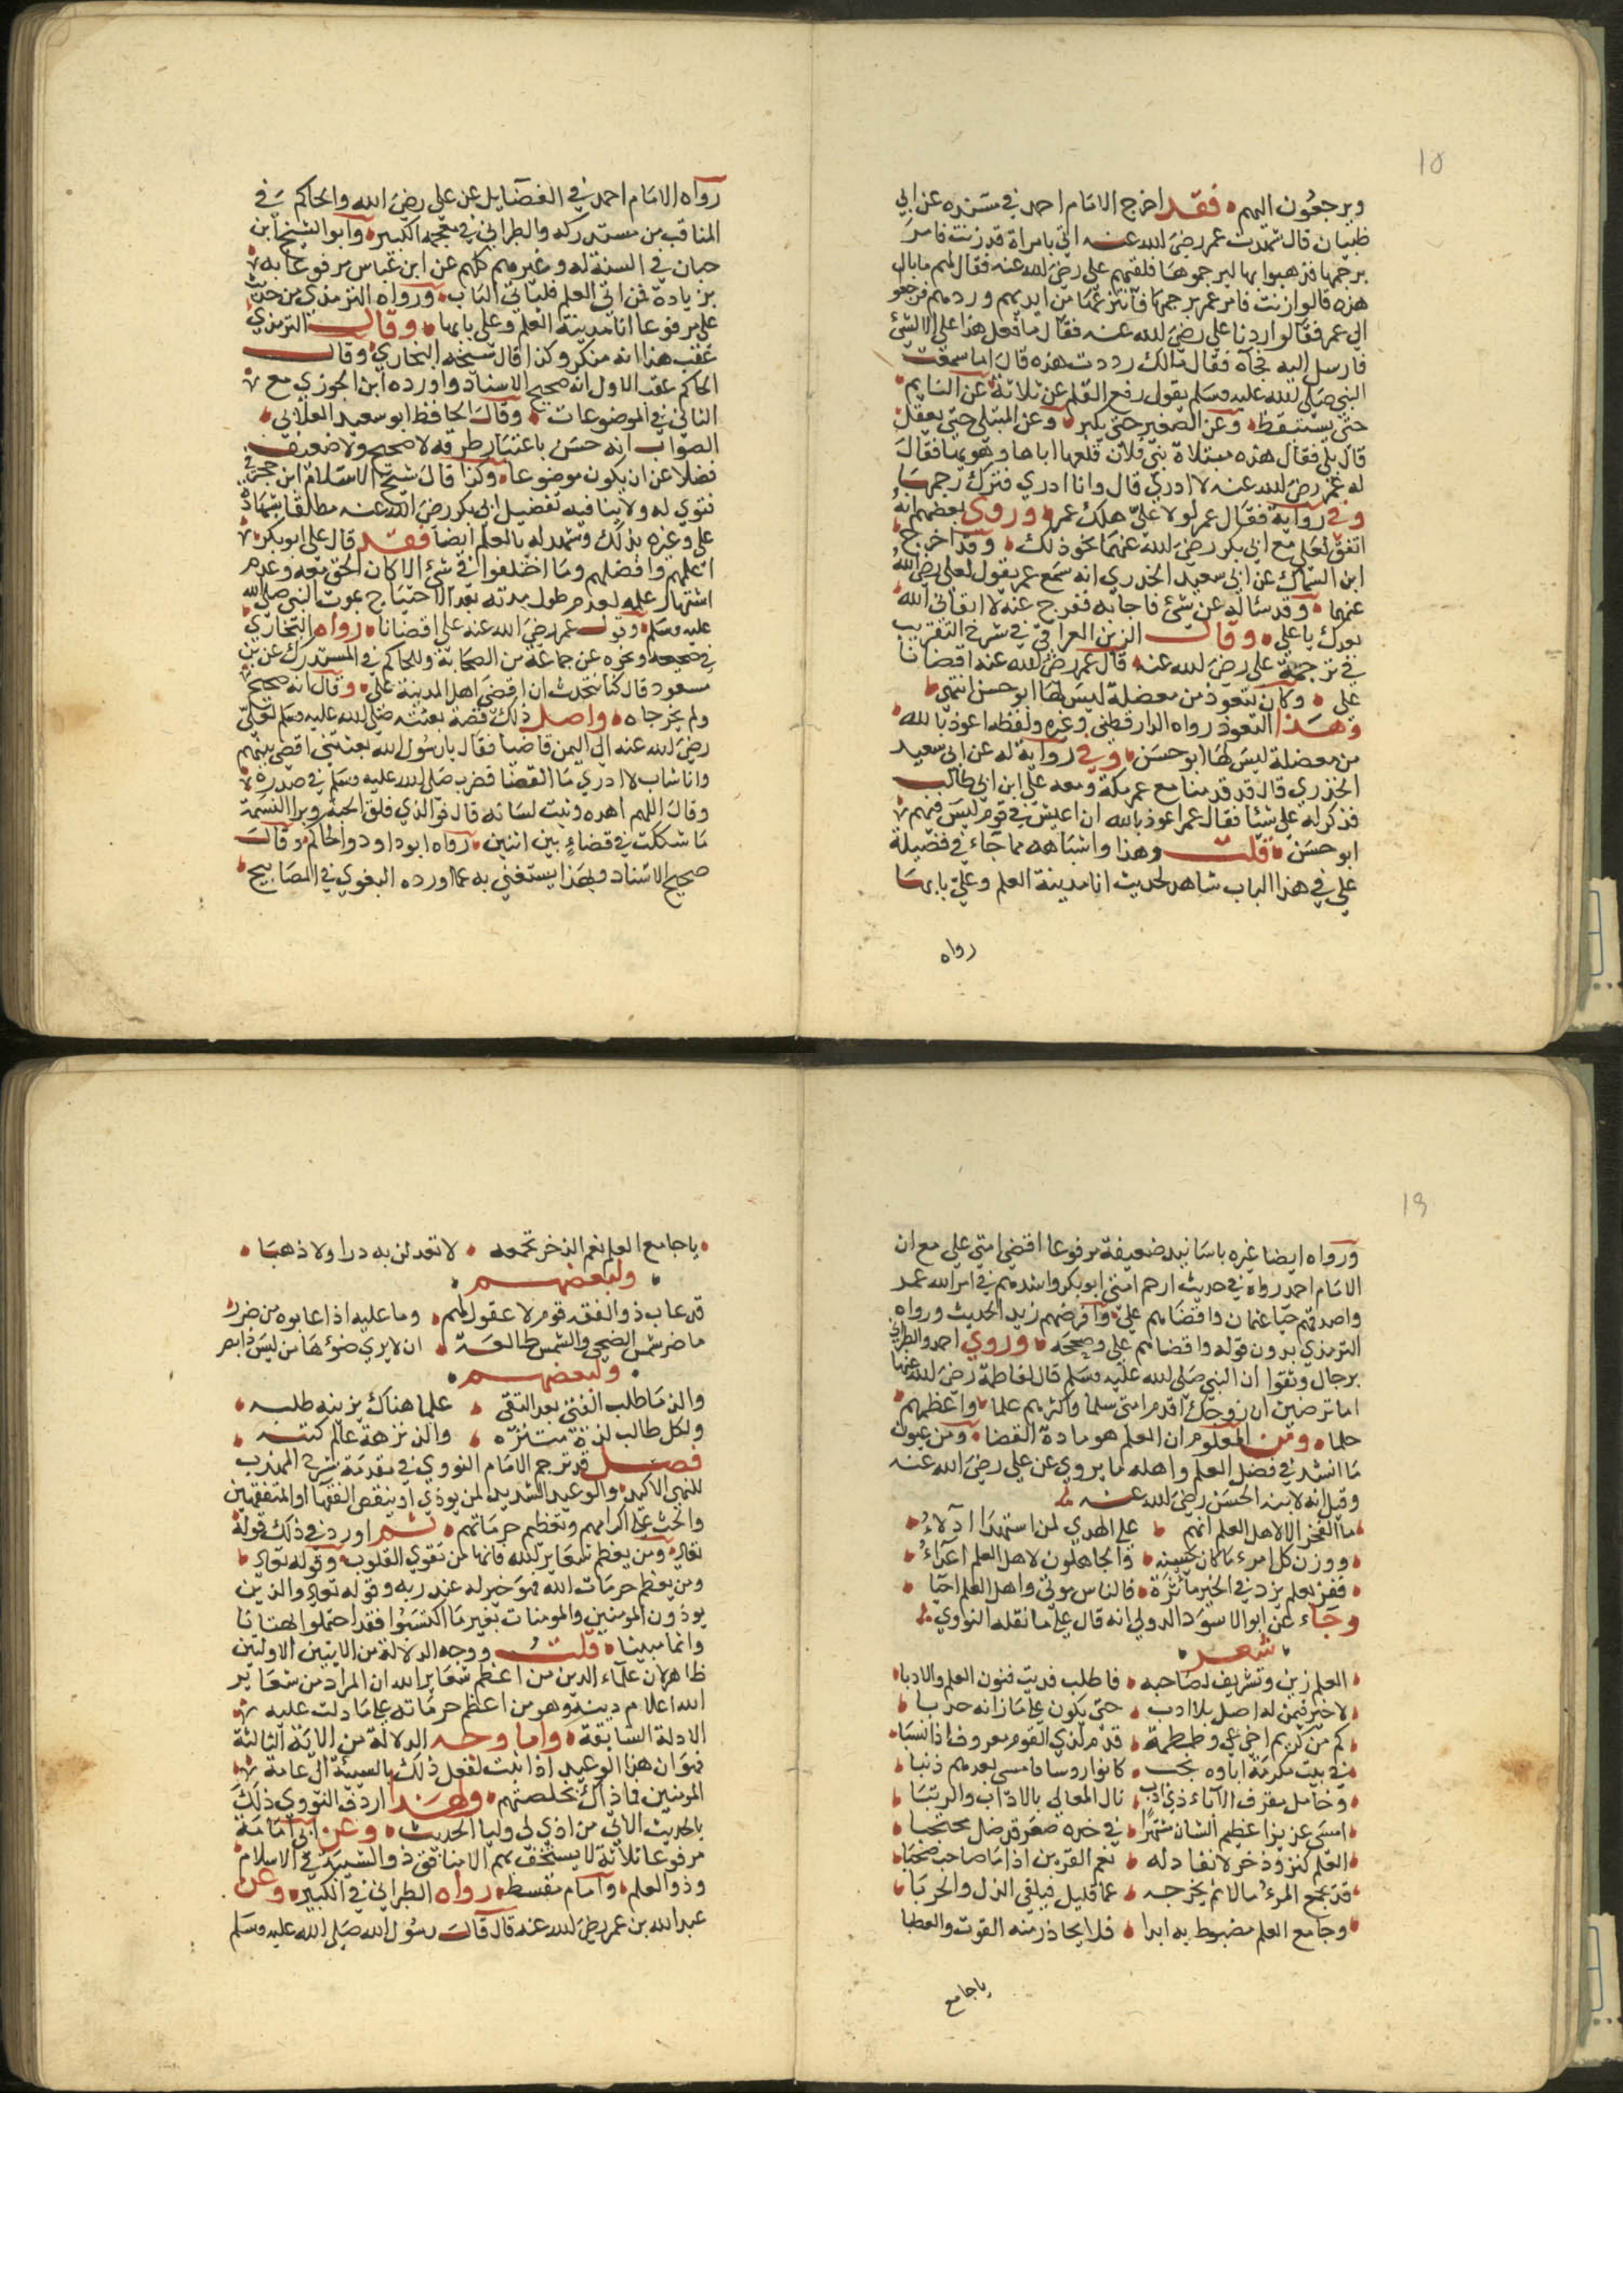 10
ويرجعون اليهم فقد اخرج الامام احمد في مسنده عن ابي
ظبيان قال شهدت عمر رضي الله عنه اتي بامراة قد زنت فامر
برجمها فذهبوا بها ليرجموها فلقيهم علي رضي الله عنه فقال لهم ما بال
هذه قالوا زنت فامر عمر برجمها فانتزعها من ايديهم وردهم فرجعوا
الى عمر فقالوا ردنا علي رضي الله عنه فقال ما فعل هذا علي الا لشئ
فارسل اليه فجآه فقال مالك رددت هذه قال اما سمعت
النبي صلى الله عليه وسلم يقول رفع القلم عن ثلاثة عن النايم
حتى يستيقظ وعن الصغير حتى يكبر وعن المبتلى حتى يعقل
قال بلى فقال هذه مبتلاة بني فلان فلعله اتاها وهو بها فقال
له عمر رضي الله عنه لا ادري قال وانا ادري فترك رجمها
وفي رواية فقال عمر لولا علي هلك عمر وروى بعضهم انه
اتفق لعلي مع ابي بكر رضي الله عنهما نحو ذلك وقد اخرج
ابن السماك عن ابي سعيد الخدري انه سمع عمر يقول لعلي رضي الله
عنهما وقد ساله عن شئ فاجابه ففرج عنه لا ابقاني الله
بعدك يا علي وقال الزين العراقي في شرح التقريب
في ترجمة علي رضي الله عنه قال عمر رضي الله عنه اقضانا
علي وكان يتعوذ من معضلة ليس لها ابو حسن انتهى
وهذا التعوذ رواه الدارقطني وغيره ولفظه اعوذ بالله
من معضلة ليس لها ابو حسن وفي رواية له عن ابي سعيد
الخدري قال قد قدمنا مع عمر مكة ومعه علي ابن ابي طالب
فذكر له علي شئا فقال عمر اعوذ بالله ان اعيش في قوم ليس فيهم
ابو حسن قلت وهذا واشباهه مما جآء في فضيلة
علي في هذا الباب شاهد لحديث انا مدينة العلم وعلي بابها
رواه
رواه الامام احمد في الفضايل عن علي رضي الله والحاكم في
المناقب من مستدركه والطبراني في معجمه الكبير وابو الشيخ ابن
حبان في السنة له وغيرهم كلهم عن ابن عباس مرفوعا به
بزيادة فمن اتى العلم فليات الباب ورواه الترمذي من حديث
علي مرفوعا انا مدينة العلم وعلي بابها وقال الترمذي
عقب هذا انه منكر وكذا قال شيخه البخاري وقال
الحاكم عقب الاول انه صحيح الاسناد واورده ابن الجوزي مع
الثاني في الموضوعات وقال الحافظ ابو سعيد العلائي
الصواب انه حسن باعتبار طرقه لا صحيح ولا ضعيف
فضلا عن ان يكون موضوعا وكذا قال شيخ الاسلام ابن حجر في
فتوي له ولا ينافيه تفضيل ابي بكر رضي الله عنه مطلقا بشهادة
علي وغيره بذلك وشهد له بالعلم ايضا فقد قال علي ابو بكر
اعلمهم وافضلهم وما اختلفوا في شئ الا كان الحق معه وعدم
اشتهار علمه لعدم طول مدته بعد الاحتياج بموت النبي صلى الله
عليه وسلم وقول عمر رضي الله عنه علي اقضانا رواه البخاري
في صحيحه ونحوه عن جماعة من الصحابة وللحاكم في المستدرك عن بن
مسعود قال كنا نتحدث ان اقضى اهل المدينة علي وقال انه صحيح
ولم يخرجاه واصل ذلك قصة بعثه صلى الله عليه وسلم لعلي
رضي الله عنه الى اليمن قاضيا فقال يا رسول الله بعثتني اقضي بينهم
وانا شاب لا ادري ما القضا فضرب صلى الله عليه وسلم في صدره
وقال اللهم اهده وثبت لسانه قال فوالذي فلق الحبة وبرا النسمة
ما شككت في قضاء بين اثنين رواه ابو داود والحاكم وقال
صحيح الاسناد وبهذا يستغنى به عما اورده البغوي في المصابيح
ورواه ايضا غيره باسانيد ضعيفة مرفوعا اقضى امتي علي مع ان
الامام احمد رواه في حديث ارحم امتي ابو بكر واشدهم في امر الله عمر
واصدقهم حيا عثمان واقضاهم علي وافرضهم زيد الحديث ورواه
الترمذي بدون قوله واقضاهم علي وصححه وروى احمد والطبراني
برجال وثقوا ان النبي صلى الله عليه وسلم قال لفاطمة رضي الله عنها
اما ترضين ان زوجتك اقدم امتي سلما واكثرهم علما واعظمهم
حلما ومن المعلوم ان العلم هو مادة القضا ومن عيون
ما انشد في فضل العلم واهله ما يروى عن علي رضي الله عنه
وقيل انه لابنه الحسن رضي الله عنه
ما الفخر الا لاهل العلم انهم على الهدى لمن استهدا ادلاء
ووزن كل امرء ما كان يحسنه والجاهلون لاهل العلم اعداء
ففز بعلم يزد في الخير مأثرة فالناس موتى واهل العلم احيا
وجاء عن ابو الاسود الدولي انه قال على ما نقله النواوي
شعر
العلم زين وتشريف لصاحبه فاطلب هديت فنون العلم والادبا
لا خير فيمن له اصل بلا ادب حتى يكون على ما زانه حدبا
كم من كريم اخي عي وطمطمة قدم لدى القوم معروف اذا انتسبا
في بيت مكرمة اباوه نجب كانوا روسا فامسى بعدهم ذنبا
وخامل مقرف الآباء ذي ادب نال المعالي بالاداب والرتبا
امسى عزيزا عظيم الشان مشتهرا في خده صعر قد ظل محتجبا
العلم كنز وذخر لا نفاد له نعم القرين اذا ما صاحب صحبا
قد يجمع المرء مالا ثم يخرجه عما قليل فيلقى الذل والحربا
وجامع العلم مغبوط به ابدا فلا يحاذر منه الفوت والعطبا
يا جامع
يا جامع العلم نعم الذخر تجمعه لا تعدلن به درا ولا ذهبا
ولبعضهم
قد عاب ذو الفقه قوم لا عقول لهم وما عليه اذا عابوه من ضرر
ما ضر شمس الضحى والشمس طالعة ان لا يرى ضوءها من ليس ذا بصر
ولبعضهم
والذ ما طلب الفتى بعد التقى علما هناك يزينه طلبه
ولكل طالب لذة متنزه والذ نزهة عالم كتبه
فصل قد ترجم الامام النووي في مقدمة شرح المهذب
للنهي الاكيد والوعيد الشديد لمن يوذي او ينقص الفقها او المتفقهين
والحث على اكرامهم وتعظيم حرماتهم ثم اورد في ذلك قوله
تعالى ومن يعظم شعاير الله فانها من تقوى القلوب وقوله تعالى
ومن يعظم حرمات الله فهو خير له عند ربه وقوله تعالى والذين
يوذون المومنين والمومنات بغير ما اكتسبوا فقد احتملوا بهتانا
واثما مبينا قلت ووجه الدلالة من الايتين الاولتين
ظاهر لان علماء الدين من اعظم شعاير الله ان المراد من شعاير
الله اعلام دينه وهو من اعظم حرماته على ما دلت عليه
الادلة السابقة واما وجه الدلالة من الاية الثالثة
فهو ان هذا الوعيد اذا ثبت لفعل ذلك بالنسبة الى عامة
المومنين فما ذاك بخلصتهم ولهذا اردف النووي ذلك
بالحديث الاتي من اذى لي وليا الحديث وعن ابي امامة
مرفوعا ثلاثة لا يستخف بهم الا منافق ذو الشيبة في الاسلام
وذو العلم وامام مقسط رواه الطبراني في الكبير وعن
عبد الله بن عمر رضي الله عنه قال قال رسول الله صلى الله عليه وسلم